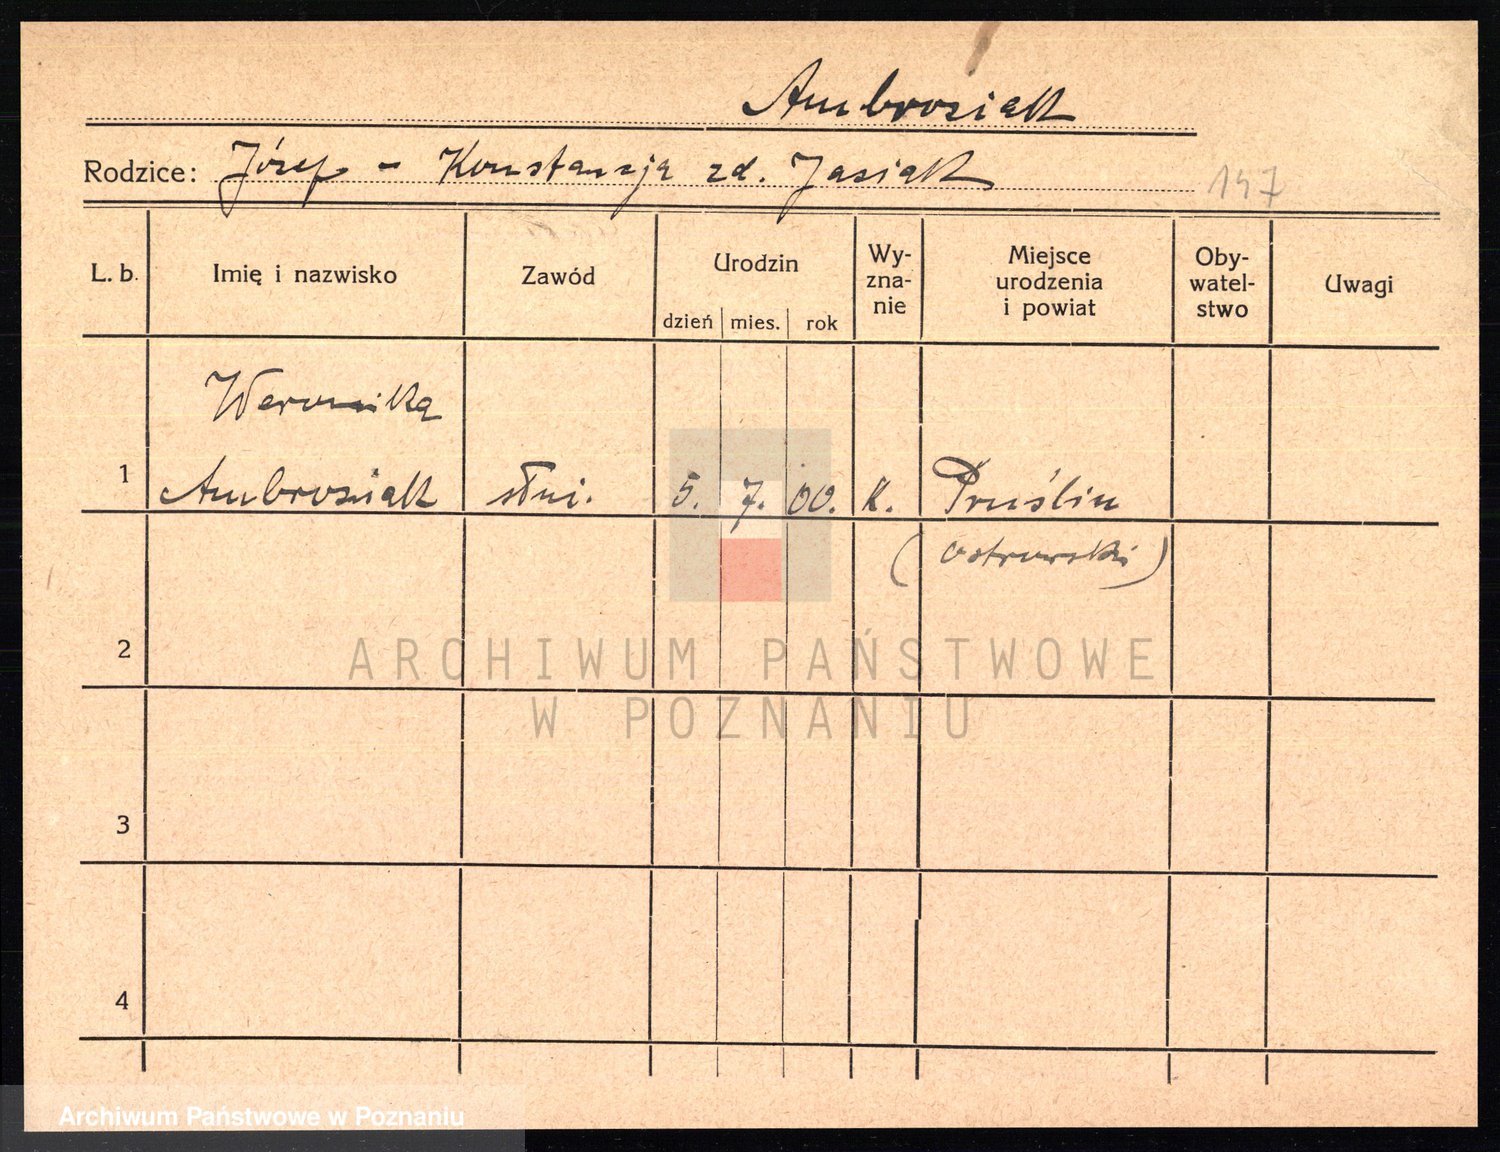 Ambrosiak
Rodzice: Józef - Konstancja zd. Jasiak
147
L. b. Imię i nazwisko Zawód Urodzin Wy-zna-nie Miejsce urodzenia i powiat Oby-watel-stwo Uwagi
dzień mies. rok
Weronika
1 Ambrosiak służ. 5. 7. 00. k. Pruślin
(ostrowski)
2
ARCHIWUM PAŃSTWOWE
W POZNANIU
3
4
Archiwum Państwowe w Poznaniu